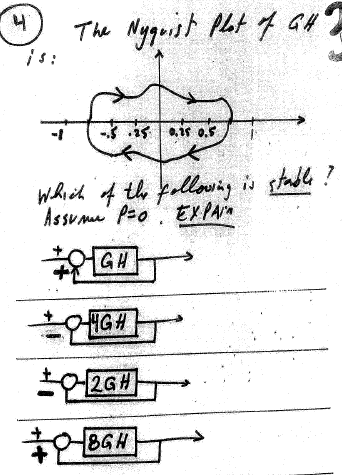 4 The Nyquist Plot of GH
is:
-1 -.5 .25 0.25 0.5 1
Which of the following is stable?
Assume P=0. EXPAin
+
+ GH
+
- 4GH
+
- 2GH
+
+ 8GH